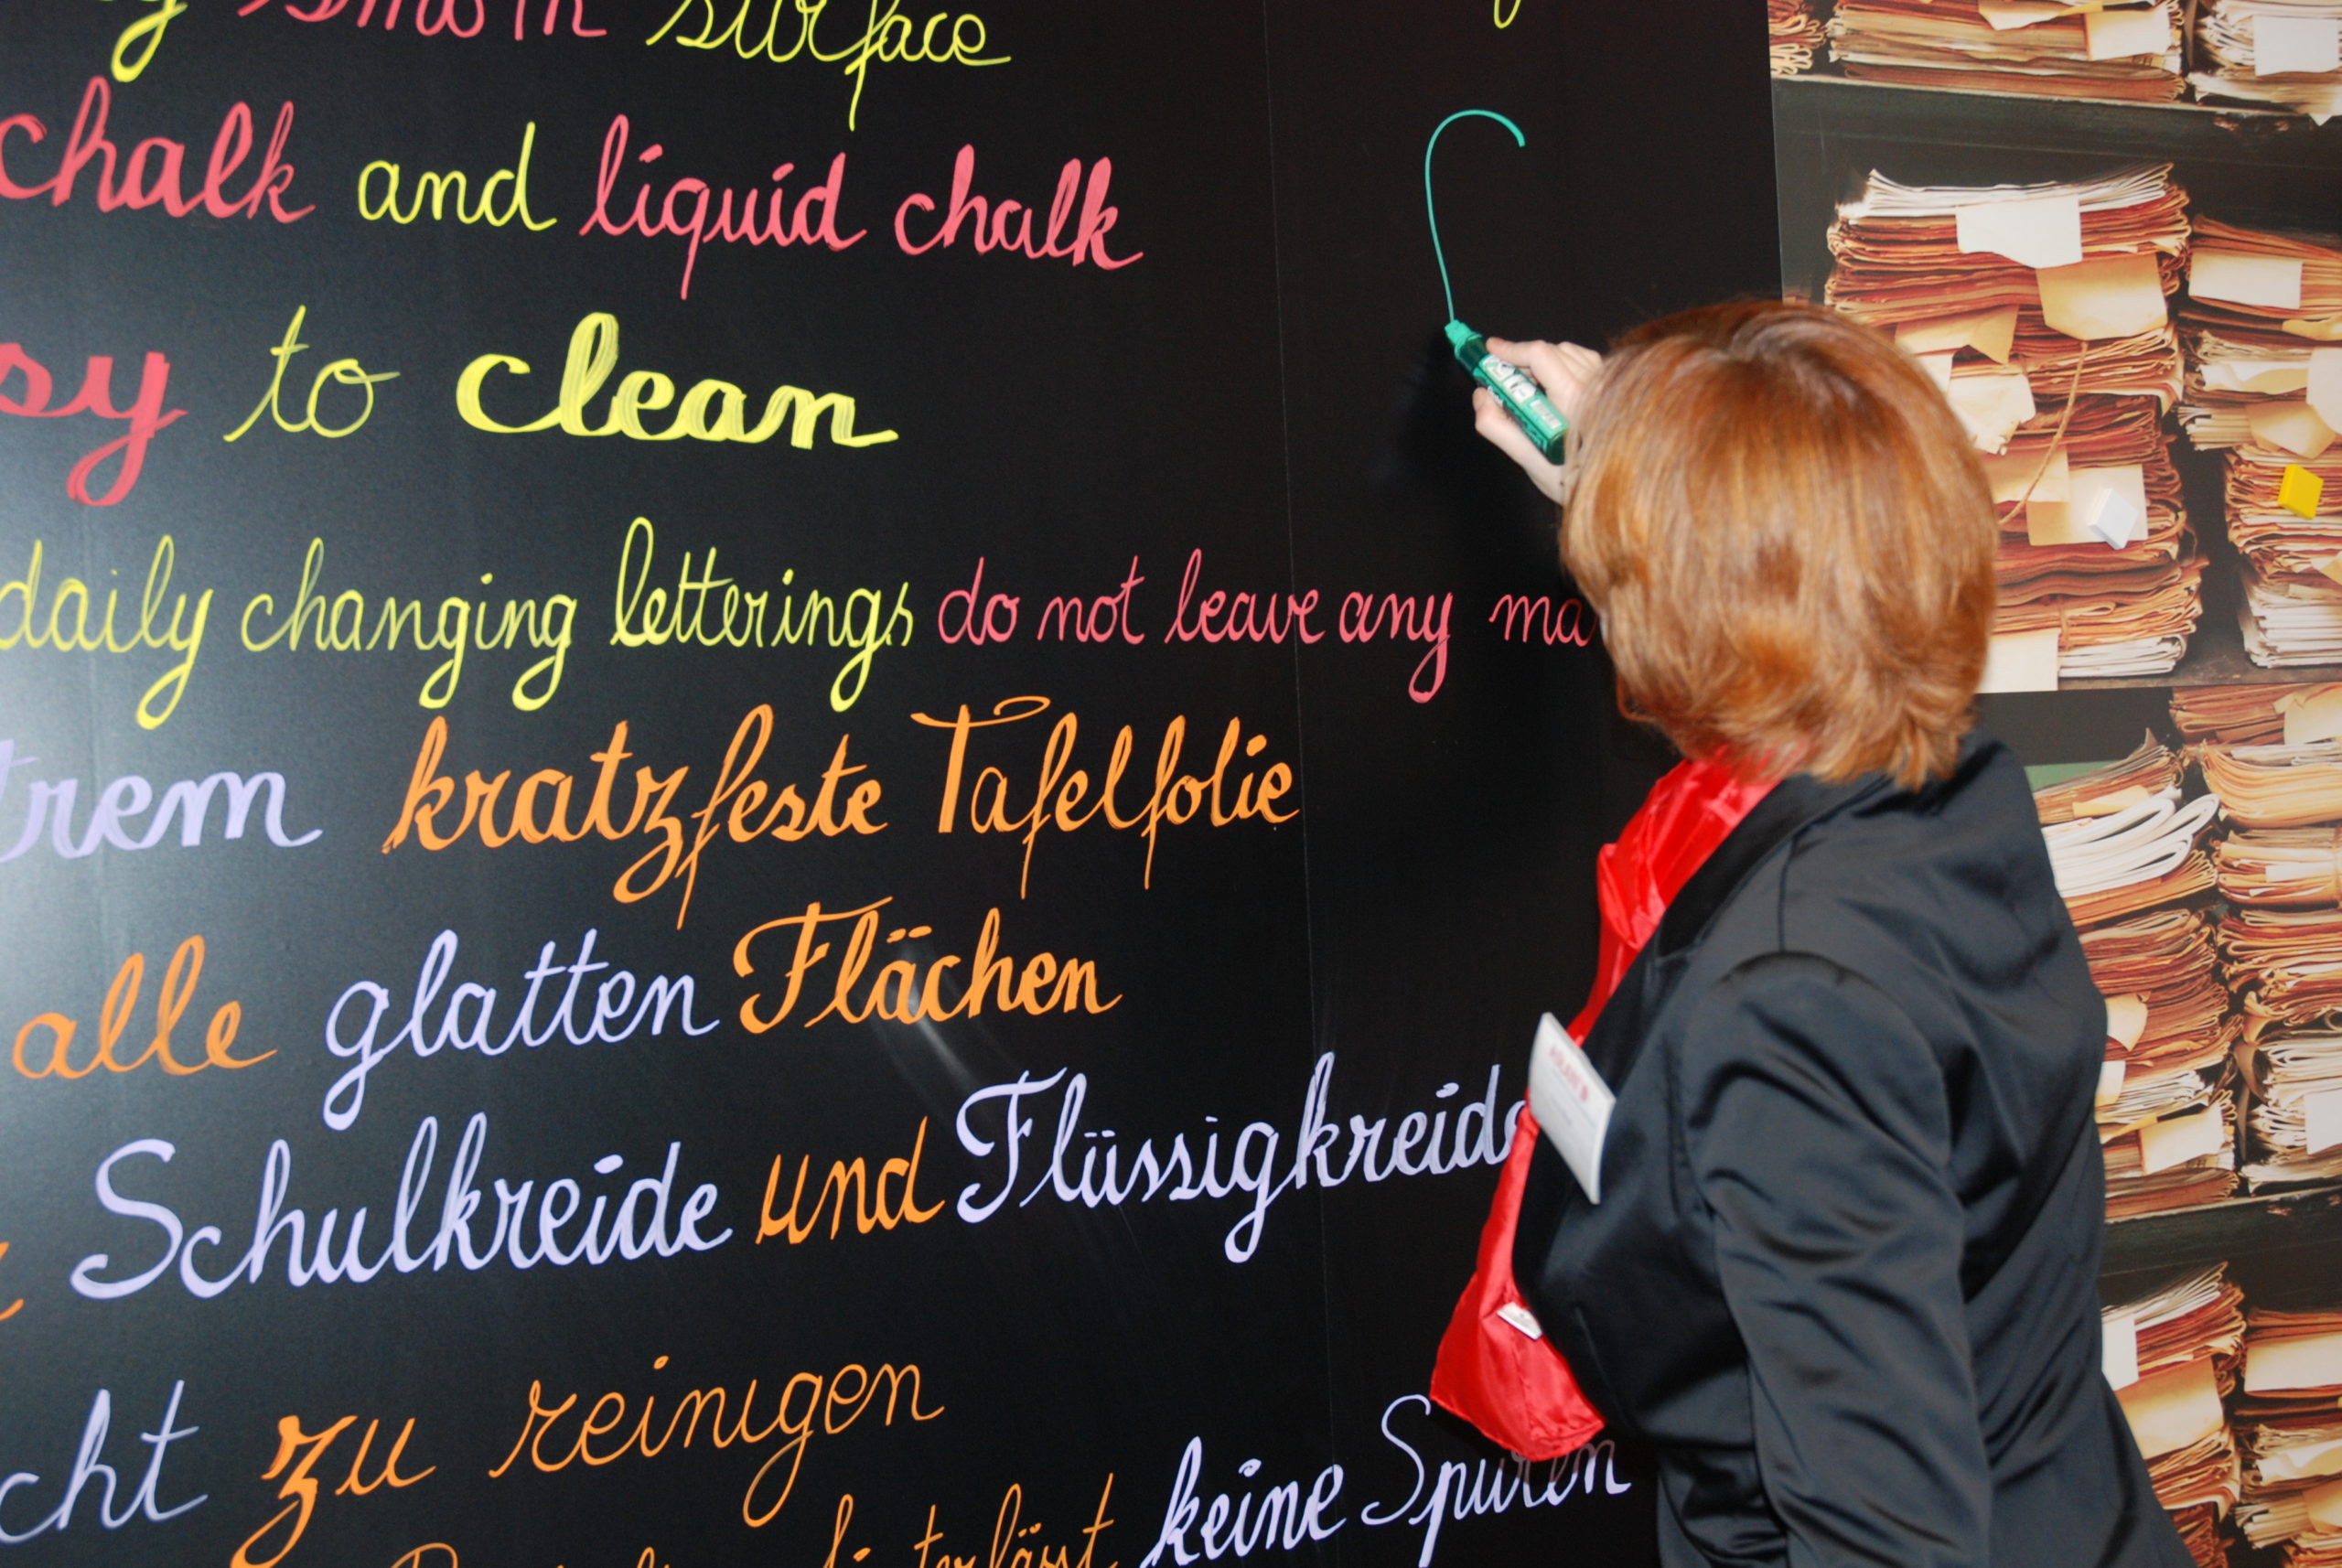 smooth surface
chalk and liquid chalk
sy to clean
daily changing letterings do not leave any ma
trem kratzfeste Tafelfolie
alle glatten Flächen
Schulkreide und Flüssigkreide
cht zu reinigen
hinterlässt keine Spuren